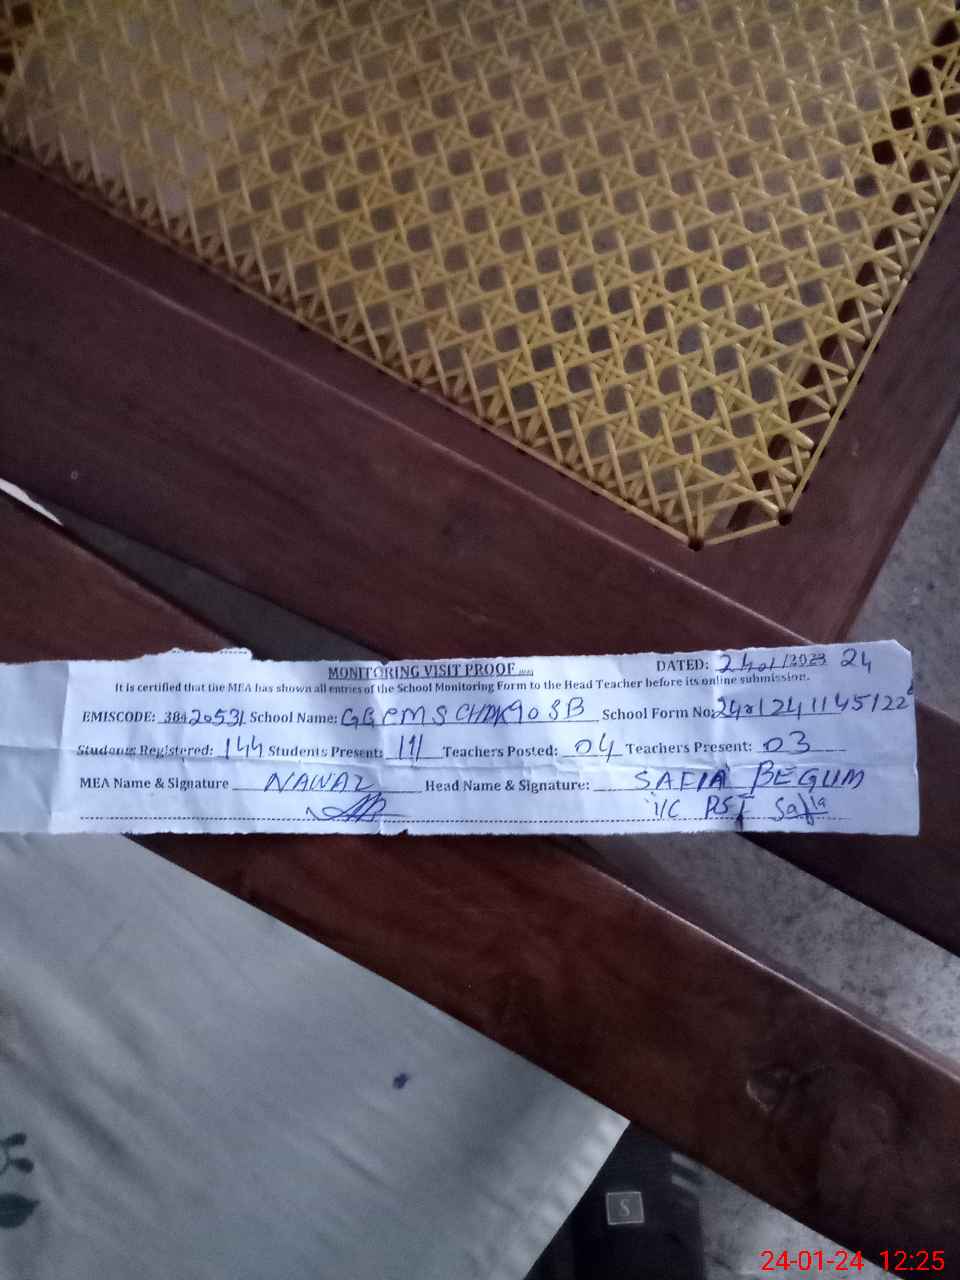 MONITORING VISIT PROOF
DATED: 24/01/2023 24
It is certified that the MEA has shown all entries of the School Monitoring Form to the Head Teacher before its online submission.
EMISCODE: 38420531 School Name: GGCMS CHAK 90 SB School Form No:
Students Registered: 144 Students Present: 111 Teachers Posted: 04 Teachers Present: 03
MEA Name & Signature NAWAZ Head Name & Signature: SAFIA BEGUM
I/C PST Safia
S
24-01-24 12:25